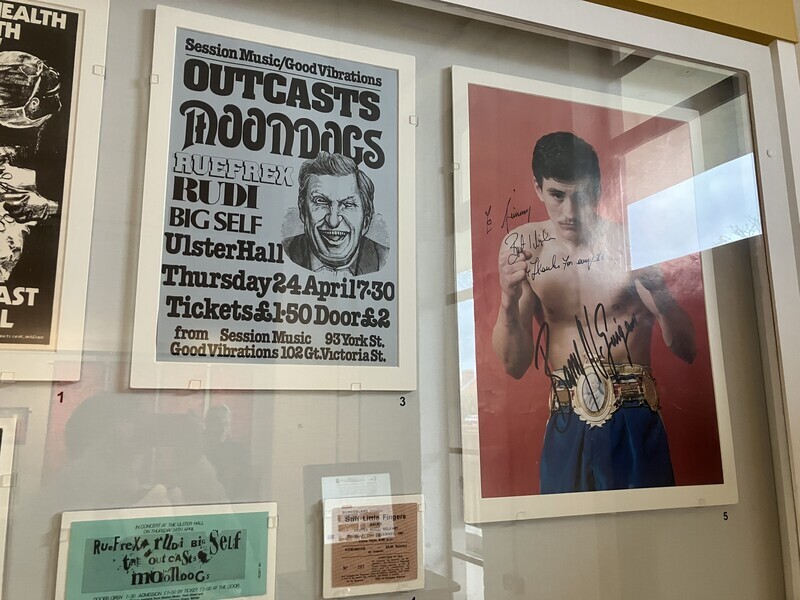 EALTH
TH
AST
L
1
Session Music/Good Vibrations
OUTCASTS
MOONDOGS
RUEFREX
RUDI
BIG SELF
Ulster Hall
Thursday 24 April 7·30
Tickets £1·50 Door £2
from Session Music 93 York St.
Good Vibrations 102 Gt. Victoria St.
3
To Jimmy
Best Wishes
Thanks for
Barry McGuigan
5
IN CONCERT AT THE ULSTER HALL
ON THURSDAY 24TH APRIL
RUEFREX rUdi BiG Self
THE OUTCASTS
MOONDOGS
DOORS OPEN 7-30 ADMISSION £1-50 BY TICKET £2-00 AT THE DOOR
Stiff Little Fingers